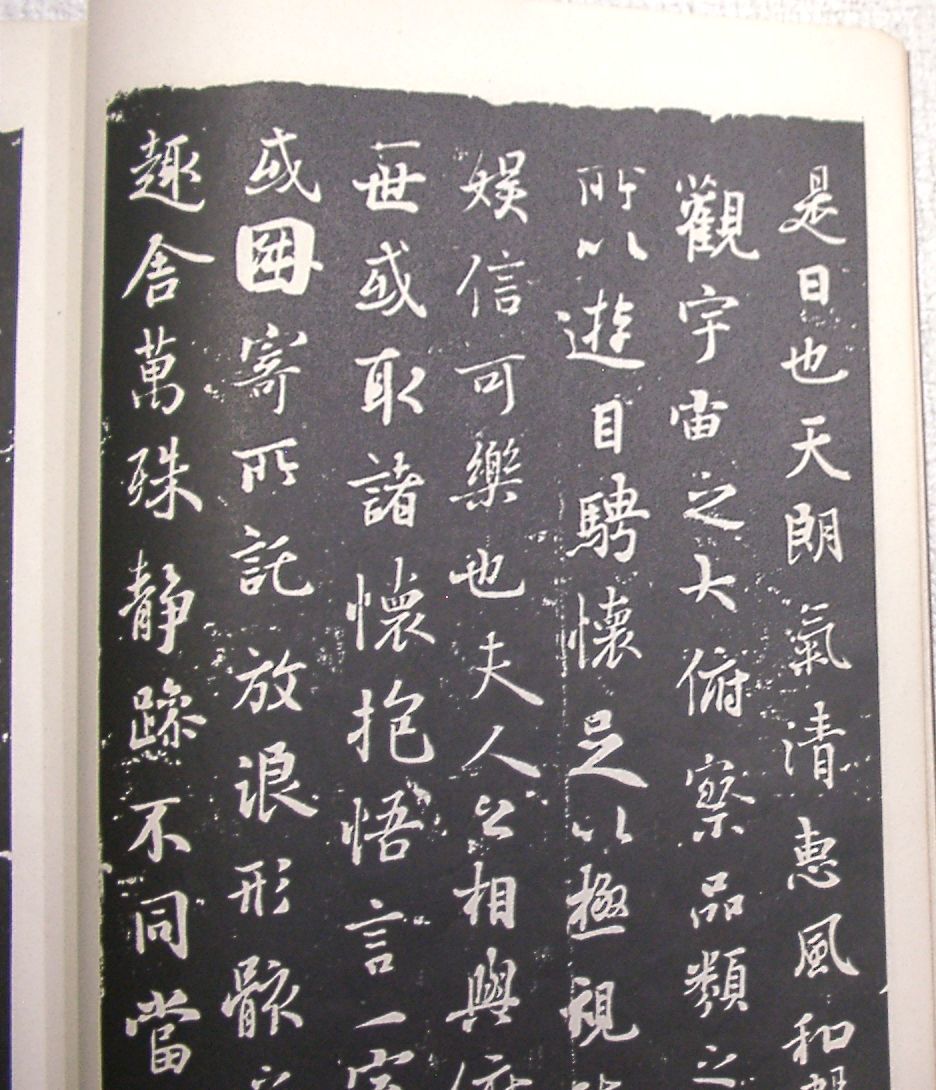 是日也天朗氣清惠風和暢
觀宇宙之大俯察品類之
所以遊目騁懷足以極視
娛信可樂也夫人之相與俯
世或取諸懷抱悟言一室
或因寄所託放浪形骸之
趣舍萬殊静躁不同當